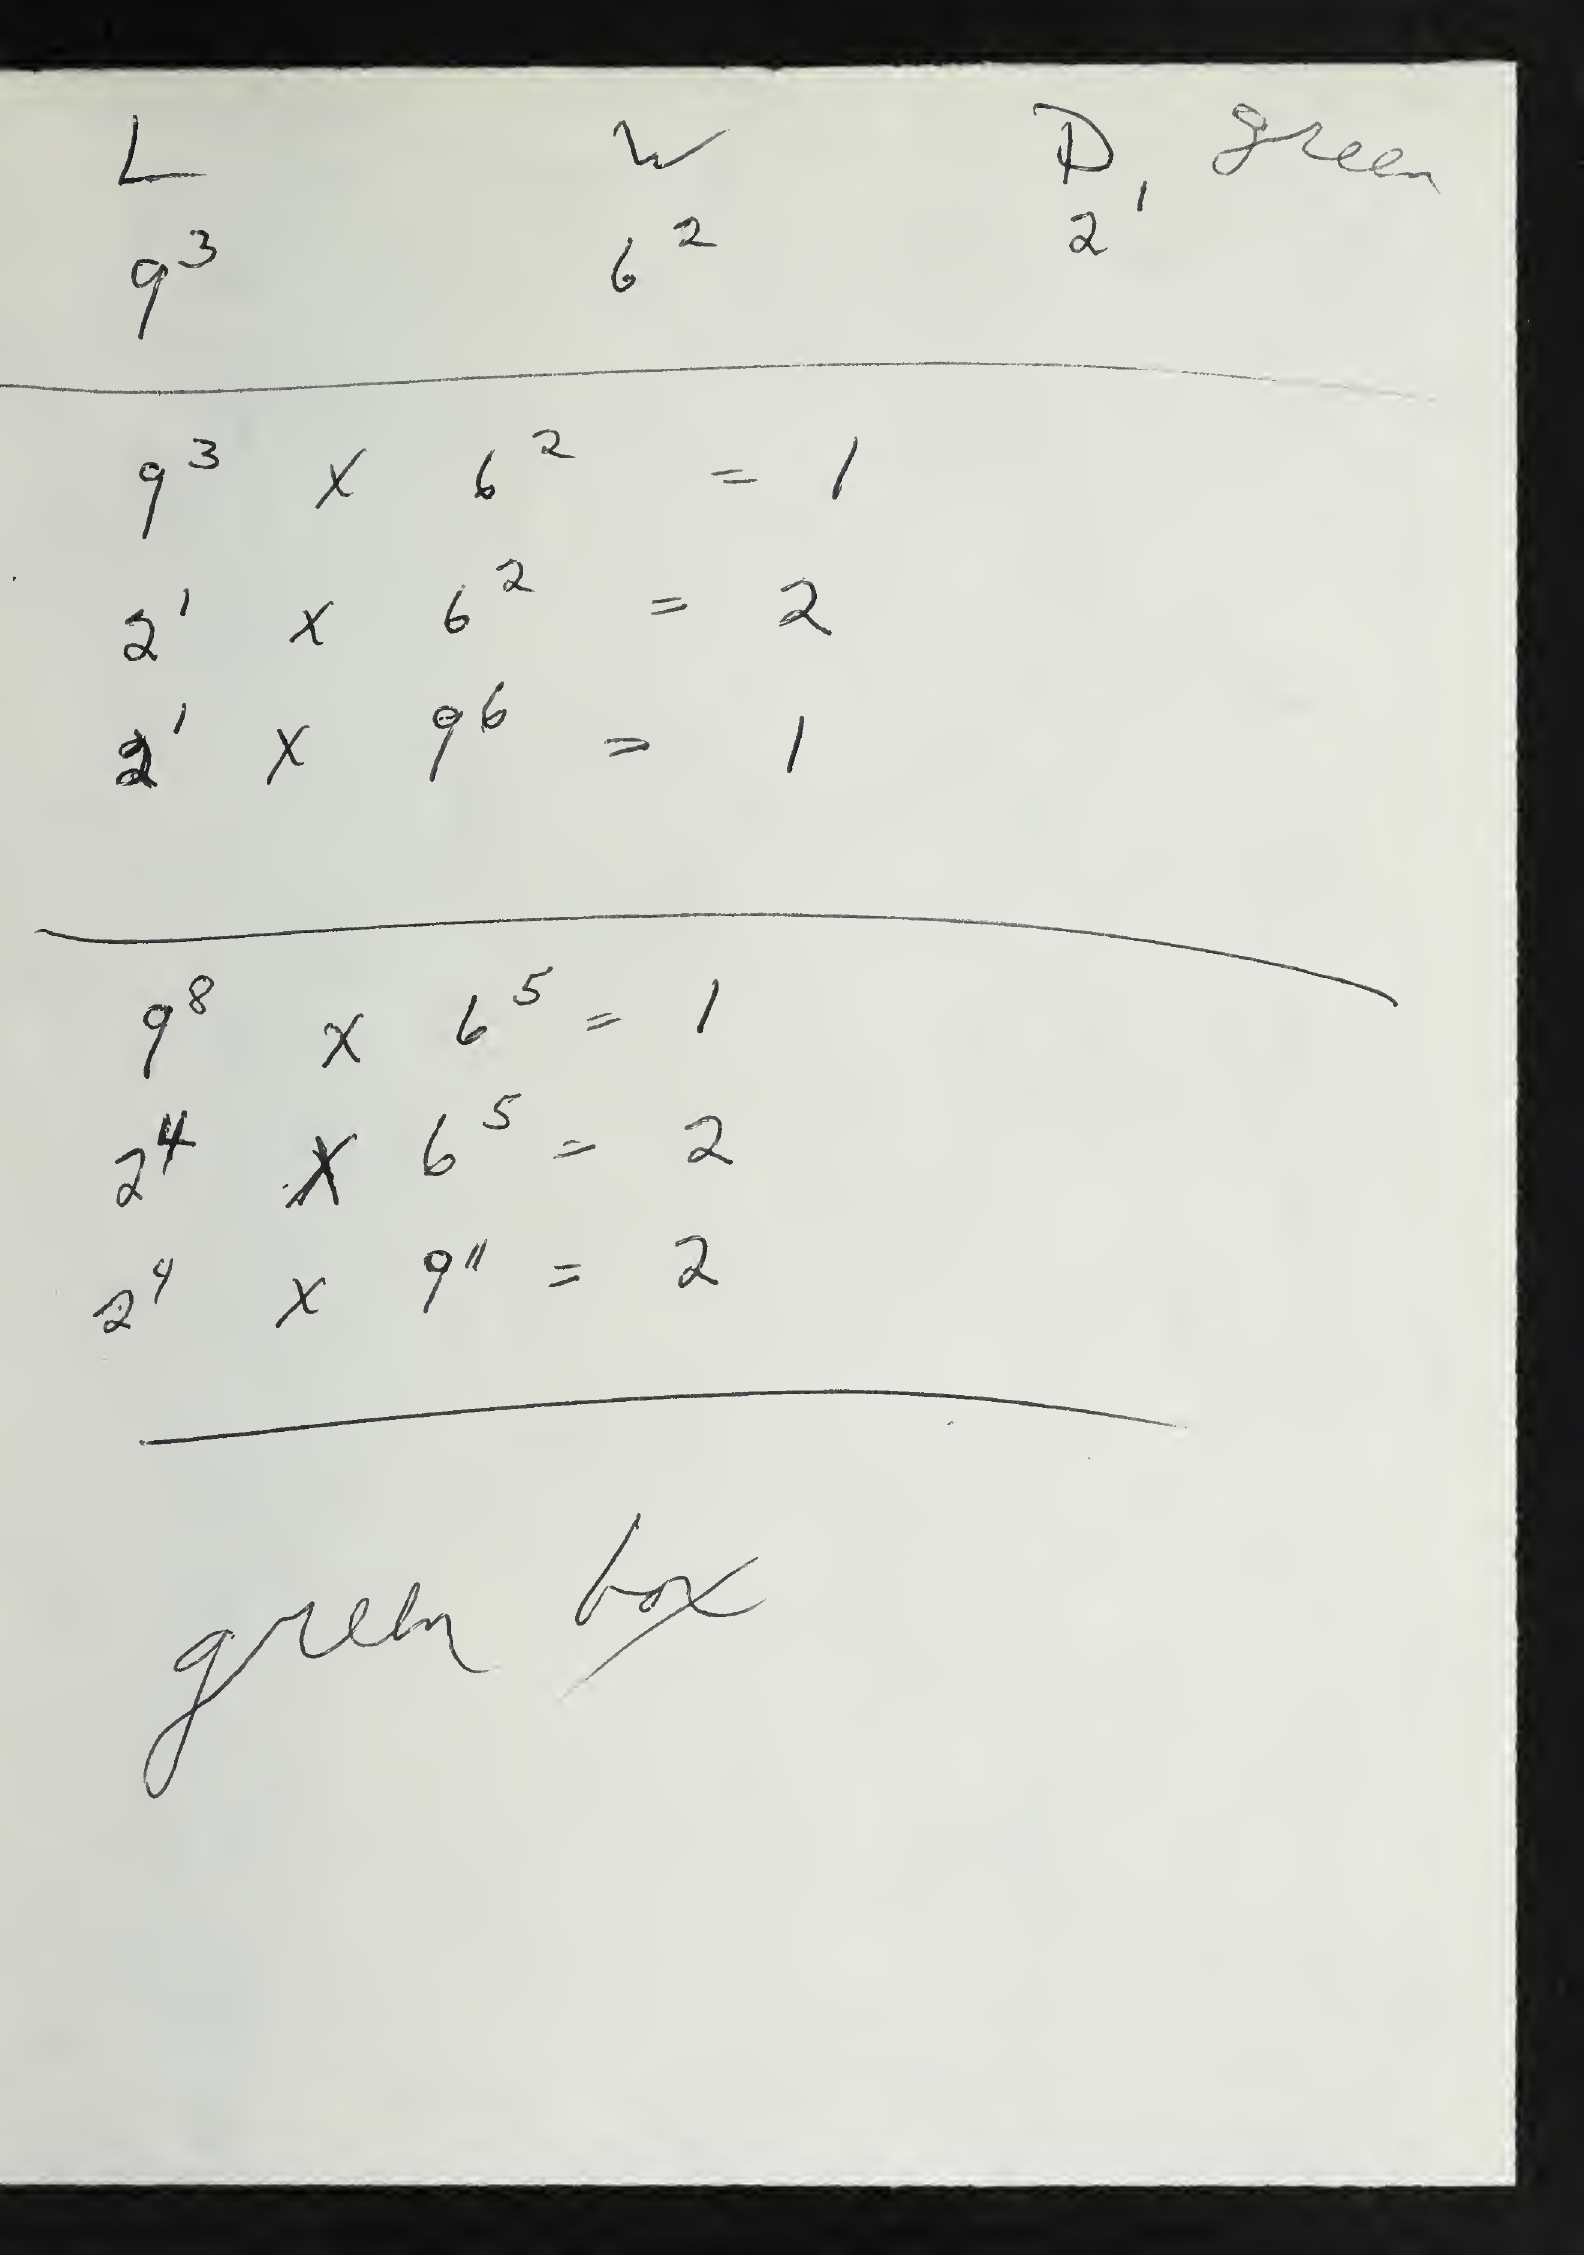 L W D, green
9³ 6² 2¹
9³ x 6² = 1
2¹ x 6² = 2
2¹ x 9⁶ = 1
9⁸ x 6⁵ = 1
2⁴ x 6⁵ = 2
2⁴ x 9¹¹ = 2
green box